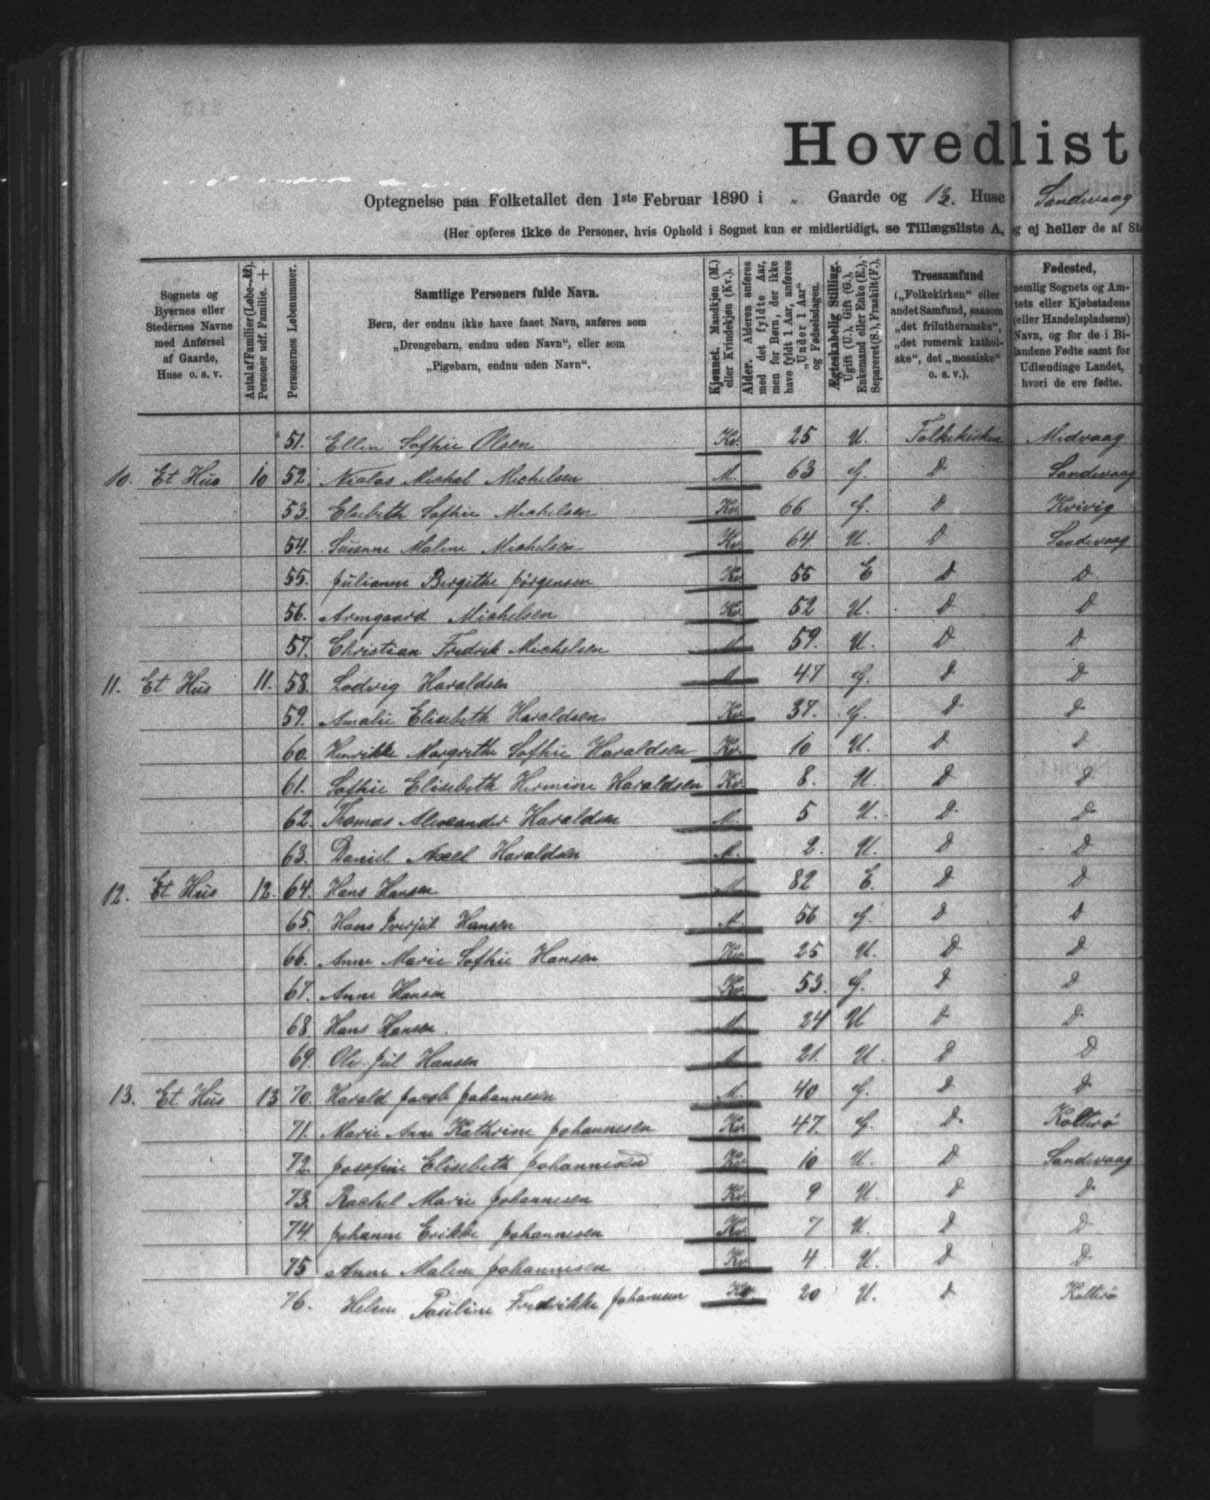 Hovedliste
Optegnelse paa Folketallet den 1ste Februar 1890 i „ Gaarde og 13. Huse i Sandevaag
(Her opføres ikke de Personer, hvis Ophold i Sognet kun er midlertidigt, se Tillægsliste A, og ej heller de af St
Sognets og Byernes eller Stedernes Navne med Anførsel af Gaarde, Huse o. s. v.
Antal af Familier (Løbe-№). Personer udf. Familie. +
Personernes Løbenummer.
Samtlige Personers fulde Navn.
Børn, der endnu ikke have faaet Navn, anføres som
„Drengebarn, endnu uden Navn", eller som
„Pigebarn, endnu uden Navn".
Kjønnet. Mandkjøn (M.) eller Kvindekjøn (Kv.).
Alder. Alderen anføres med det fyldte Aar, men for Børn, der ikke have fyldt 1 Aar, anføres „Under 1 Aar" og Fødselsdagen.
Ægteskabelig Stilling. Ugift (U.), Gift (G.), Enkemand eller Enke (E.), Separeret (S.), Fraskilt (F.),
Trossamfund
i „Folkekirken" eller
andet Samfund, saasom
„det frilutheranske",
„det romersk kathol-
ske", det „mosaiske"
o. s. v.).
Fødested,
nemlig Sognets og Am-
tets eller Kjøbstadens
(eller Handelspladsens)
Navn, og for de i Bi-
landene Fødte samt for
Udlændinge Landet,
hvori de ere fødte.
51. Ellen Sofhie Olsen Kv. 25 U. Folkekirken Midvaag
10. Et Hus 10 52. Niclas Michal Michelsen M. 63 G. D Sandevaag
53. Elsebeth Sofhie Michelsen Kv. 66 G. D Kvivig
54. Susanne Malene Michelsen Kv. 64 U. D Sandevaag
55. Julianne Birgithe Jørgensen Kv. 55 E D D
56. Armgaard Michelsen Kv. 52 U. D D
57. Christian Fredrik Michelsen M. 59. U. D D
11. Et Hus 11. 58. Lodvig Haraldsen M 47 G. D D
59. Amalie Elisebeth Haraldsen Kv. 37. G. D D
60. Henrikke Margrethe Sofhie Haraldsen Kv. 10 U. D D
61. Sofhie Elisebeth Hermine Haraldsen Kv. 8. U. D D
62. Thomas Alexander Haraldsen M. 5 U. D D
63. Daniel Axel Haraldsen M. 2. U. D D
12. Et Hus 12. 64. Hans Hansen M 82 E. D D
65. Hans Hansen M. 56 G. D D
66. Anne Marie Sofhie Hansen Kv. 25 U. D D
67. Anne Hansen Kv. 53. G. D D
68 Hans Hansen. M. 24 U D D
69. Ole Jul Hansen M. 21. U D D
13. Et Hus 13 70. Harald Jacob Johannesen M. 40 G. D D
71. Marie Anne Kathrine Johannesen Kv. 47. G. D. Kolterø
72. Josefine Elisebeth Johannesen Kv. 10 U. D Sandevaag
73. Rachel Marie Johannesen Kv. 9 U. D D
74. Johanne Erikke Johannesen Kv. 7 U. D D
75 Anne Malene Johannesen Kv. 4 U. D D
76. Helene Pauline Fredrikke Johansen Kv. 20 U. D Kolterø